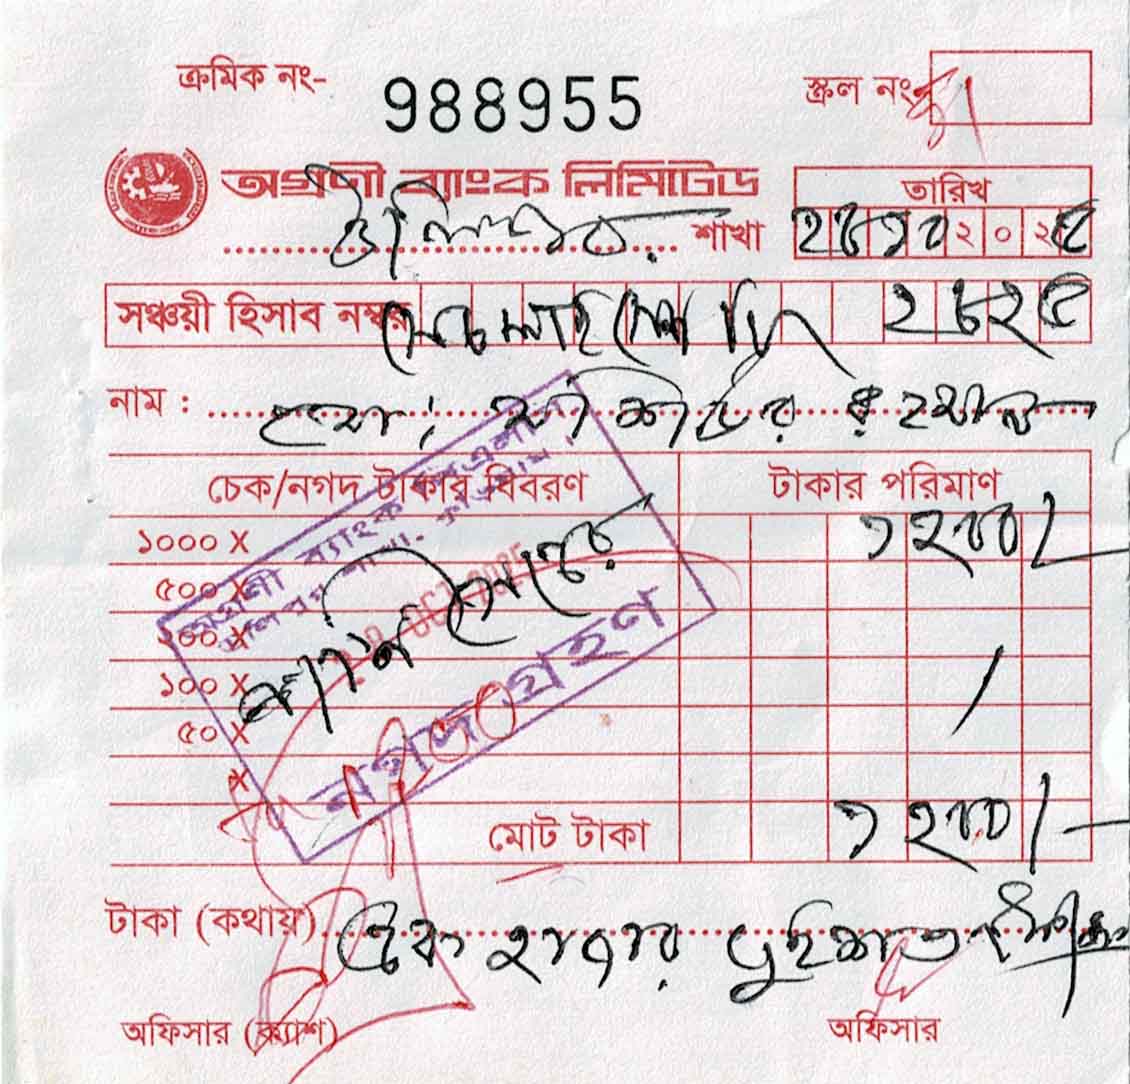 ক্রমিক নং- 988955
স্ক্রল নং
অগ্রণী ব্যাংক লিমিটেড
উলিপুর শাখা
তারিখ
২৮ ১০ ২০২৫
সঞ্চয়ী হিসাব নম্বর ২৮২৫
নাম : মোঃ রহমান
চেক/নগদ টাকার বিবরণ টাকার পরিমাণ
১০০০ X ১২০০/-
৫০০ X
২০০ X
১০০ X
৫০ X
X
মোট টাকা ১২০০/-
অগ্রণী ব্যাংক পিএলসি
উলিপুর শাখা, কুড়িগ্রাম
28 OCT 2025
নগদ গ্রহণ
টাকা (কথায়) এক হাজার দুইশত
অফিসার (ক্যাশ) অফিসার